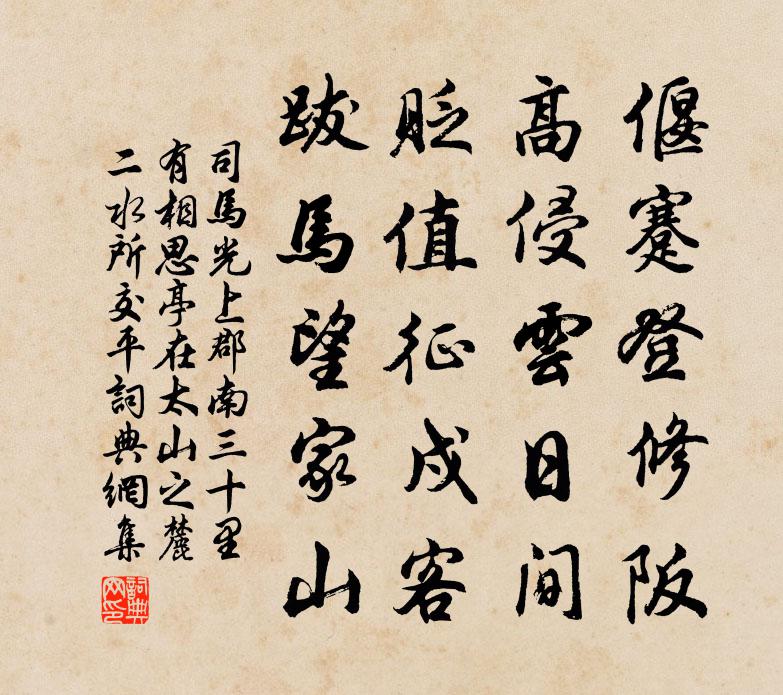 偃蹇登修阪
高侵雲日間
貶值征戍客
跋馬望家山
司馬光上郡南三十里
有相思亭在太山之麓
二水所交平詞典網集
詞典網印